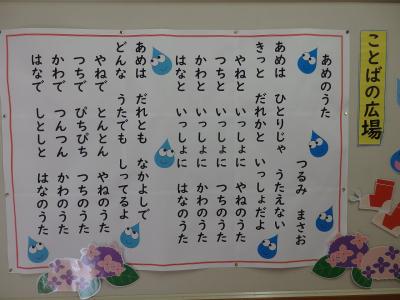 ことばの広場
あめのうた
つるみ　まさお
あめは　ひとりじゃ　うたえない
きっと　だれかと　いっしょだよ
やねと　いっしょに　やねのうた
つちと　いっしょに　つちのうた
かわと　いっしょに　かわのうた
はなと　いっしょに　はなのうた
あめは　だれとも　なかよしで
どんな　うたでも　しってるよ
やねで　とんとん　やねのうた
つちで　ぴちぴち　つちのうた
かわで　つんつん　かわのうた
はなで　しとしと　はなのうた